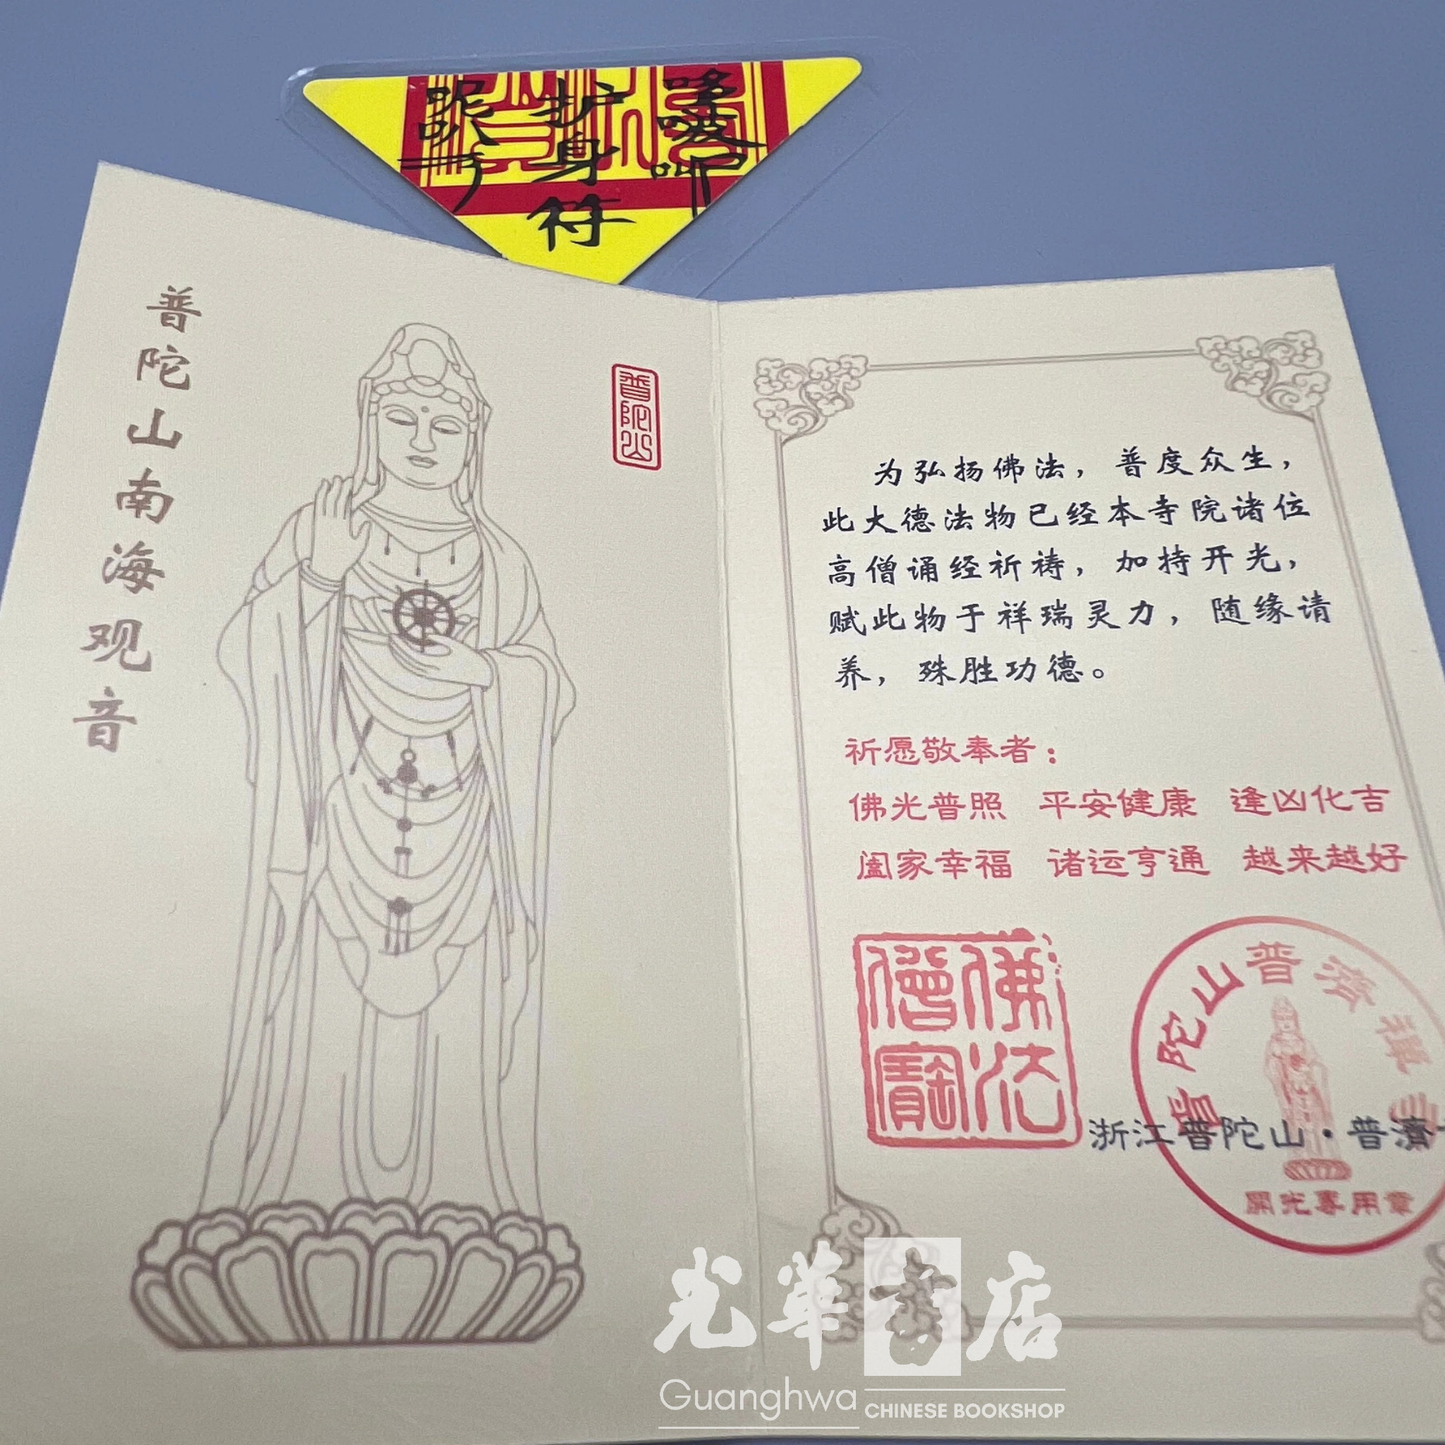 护身符
普陀山南海观音
普陀山
为弘扬佛法，普度众生，
此大德法物已经本寺院诸位
高僧诵经祈祷，加持开光，
赋此物于祥瑞灵力，随缘请
养，殊胜功德。
祈愿敬奉者：
佛光普照 平安健康 逢凶化吉
阖家幸福 诸运亨通 越来越好
佛法
僧寶
普陀山普濟禪
浙江普陀山·普濟
開光專用章
光華書店
Guanghwa
CHINESE BOOKSHOP